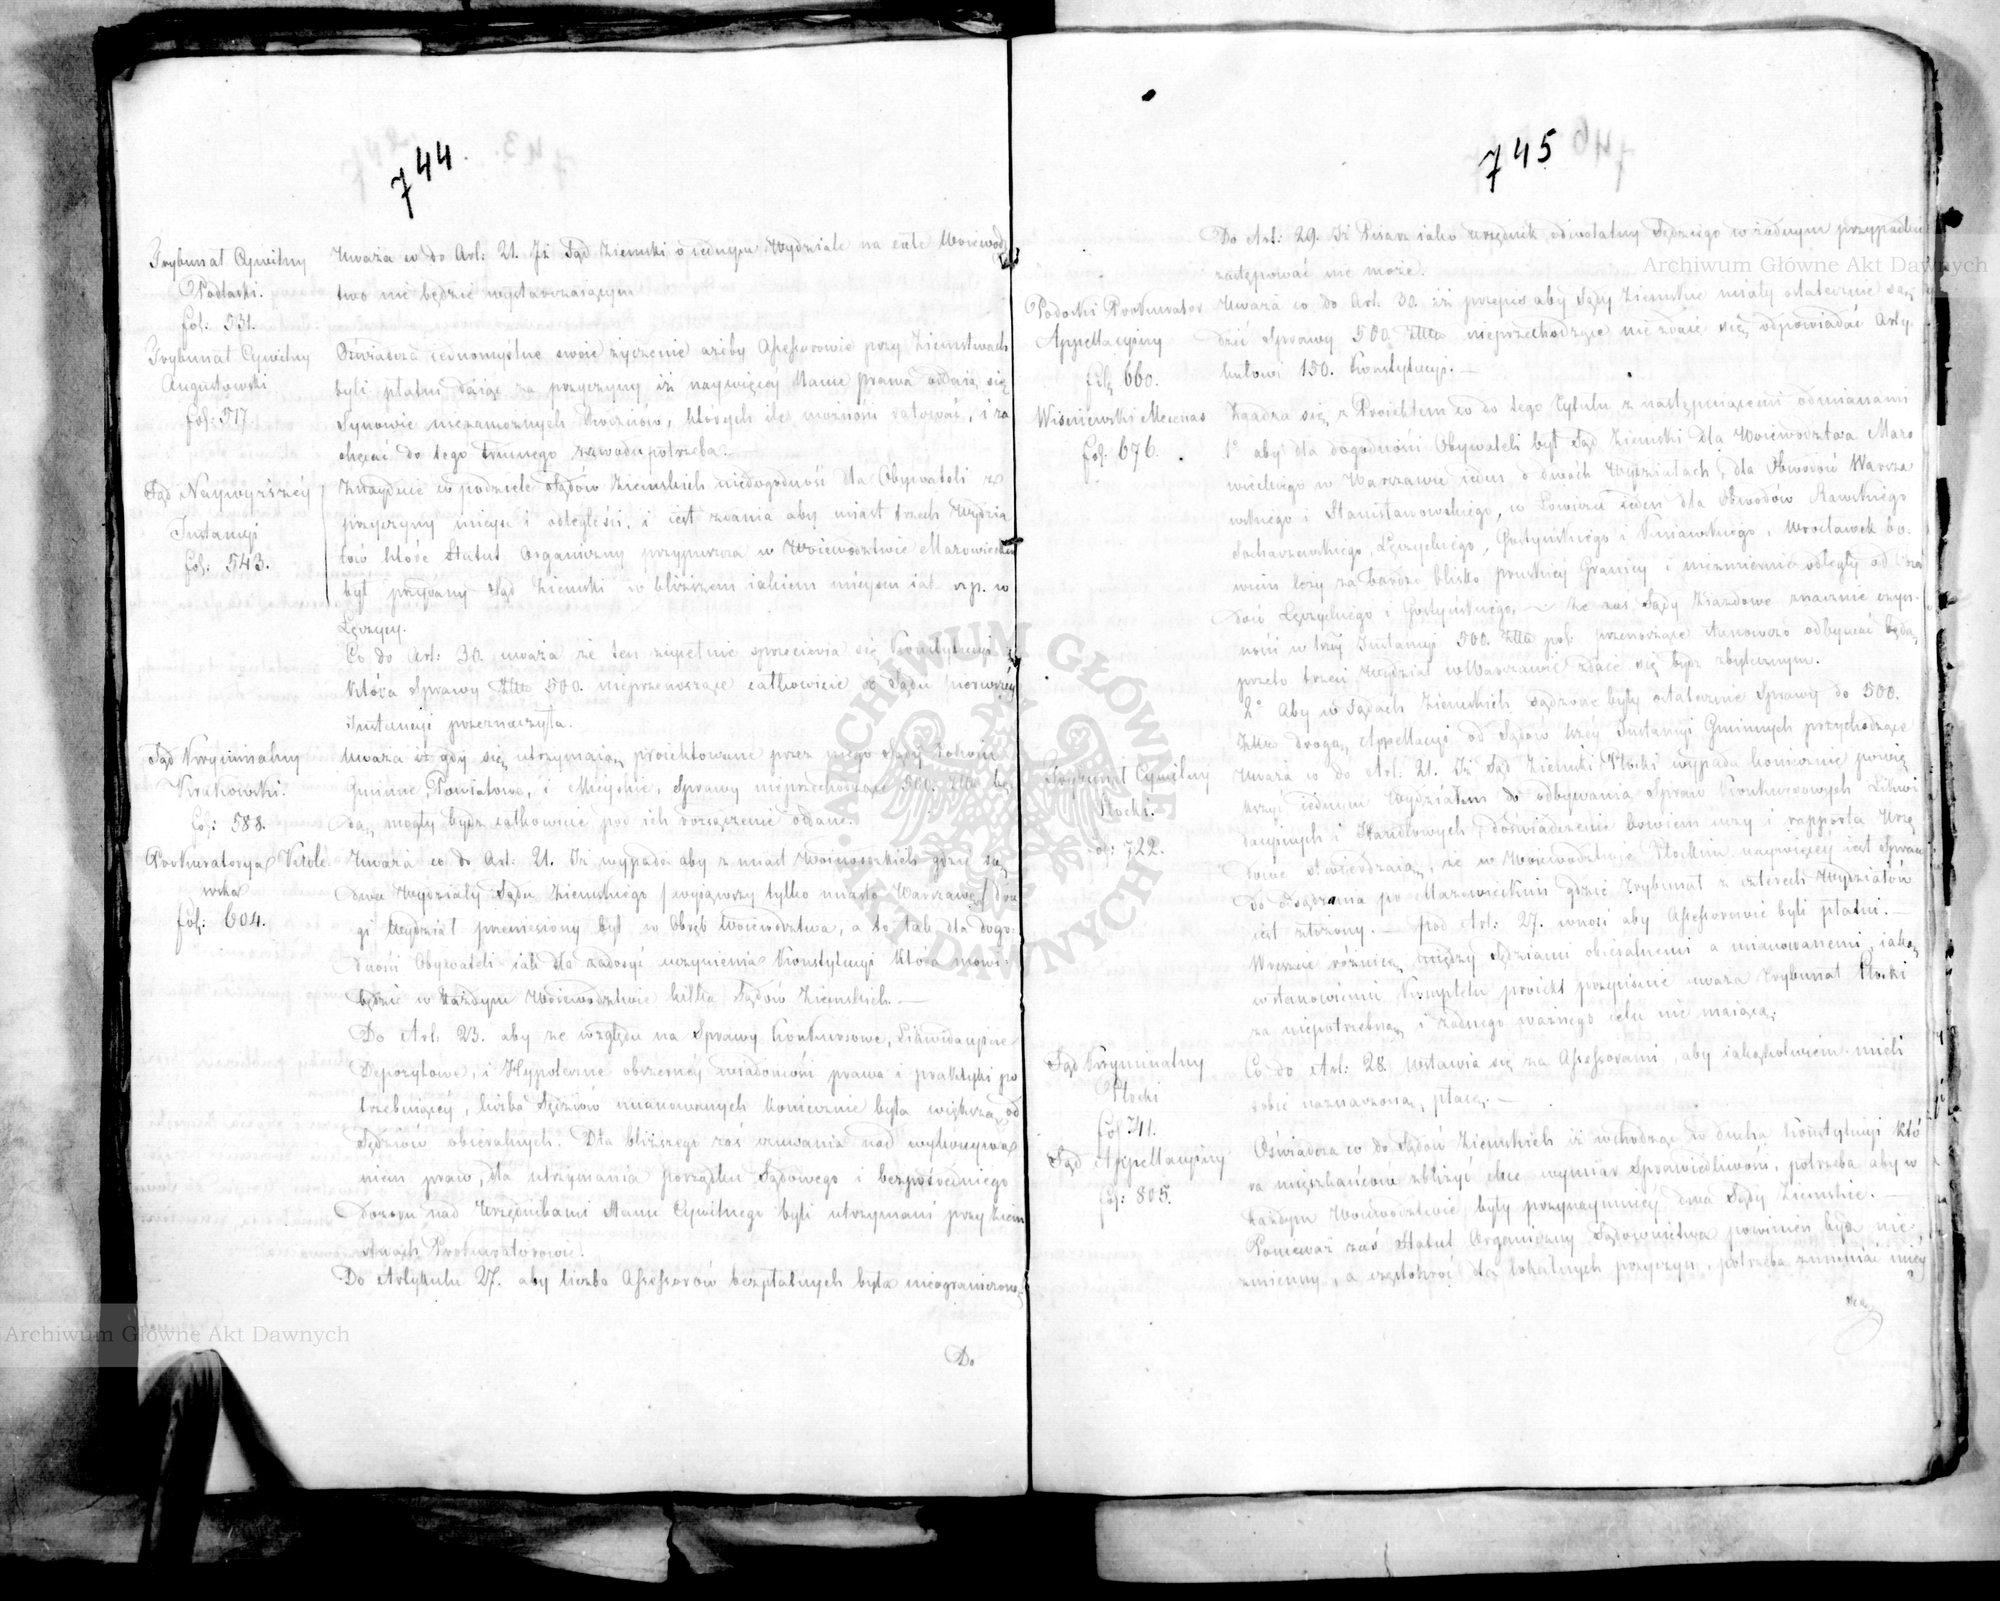 744.
Trybunał Cywilny
Podlaski.
fol: 531.
Uważa co do Art: 21. Iż Sąd Ziemski o iednym Wydziale na całe Wojewódz
two nie będzie wystarczaiącym
Trybunał Cywilny
Augustowski
fol: 517
Oświadcza iednomyślne swoie życzenie ażeby Assessorowie przy Ziemstwach
byli płatni daiąc za przyczynę iż naywięcey stanie prawa oddaią się
Synowie niezamożnych Rodziców, których ile możności ratować, i za
chęcać do tego trudnego zawodu potrzeba.
Sąd Naywyższéy
Instancyi
fol: 543.
Znayduie w podziele Sądów Ziemskich niedogodność dla Obywateli z
przyczyny mieysc i odległości, i iest zdania aby miast trzech Wydzia
łów które Statut Organiczny przypuszcza w Woiewodztwie Mazowieckim
był przydany Sąd Ziemski w bliższem iakiem mieyscu iak np. w
Łęczycy.
Co do Art: 30. uważa że ten zupełnie sprzeciwia się Konstytucyi
która Sprawy Złło 500. nieprzenoszące całkowicie do Sądu pierwszéy
Instancyi przeznaczyła.
Sąd Kryminalny
Krakowski.
fol: 588.
Uważa iż gdy się utrzymaią proiektowane przez niego Sądy Pokoiu
Gminne, Powiatowe, i Mieyskie, Sprawy nieprzechodzące 500. Złło bę
dą mogły bydź całkowicie pod ich rozsądzenie oddane.
Prokuratorya Króle
wska
fol: 604.
Uważa co do Art: 21. Iż wypada aby z miast Woiewodzkich gdzie są
dwa Wydziały Sądu Ziemskiego /wyiąwszy tylko miasto Warszawę/ dru
gi Wydział przeniesiony był w Obręb Woiewództwa, a to tak dla dogo
dności Obywateli iak dla zadosyć uczynienia Konstytucyi która mówi:
będzie w każdym Woiewodztwie kilka Sądów Ziemskich. —
Do Art: 23. aby ze względu na Sprawy Konkursowe, Likwidacyine
Depozytowe, i Hypoteczne obszernéy wiadomości prawa i praktyki po
trzebuiącéy, liczba Sędziów mianowanych koniecznie była większa od
Sędziów obieralnych. Dla bliższego zaś czuwania nad wykonywa
niem praw, dla utrzymania porządku Sądowego i bezpośredniego
dozoru nad Urzędnikami Stanu Cywilnego byli utrzymani przy Ziem
stwach Prokuratorowie.
Do Artykułu 27. aby liczba Assessorów bezpłatnych była nieograniczoną
Do
745
Do Art: 29. Iż Pisarz iako urzędnik odwołalny Sędziego w żadnym przypadku
zastępować nie może.
Podoski Prokurator
Appellacyiny
fol: 660.
Uważa co do Art: 30. iż przepis aby Sądy Ziemskie miały ostatecznie są
dzić Sprawy 500. Złło nieprzechodzące nie zdaie się odpowiadać Arty
kułowi 150. Konstytucyi. —
Wiśniewski Mecenas
fol: 676.
Zgadza się z Proiektem co do tego tytułu z następuiącemi odmianami
1º aby dla dogodności Obywateli był Sąd Ziemski dla Województwa Mazo
wieckiego w Warszawie ieden o dwóch Wydziałach, dla Obwodów Warsza
wskiego i Stanisławowskiego, w Łowiczu ieden dla Obwodów Rawskiego
Sochaczewskiego, Łęczyckiego, Gostyńskiego i Kuiawskiego, Wrocławek bo
wiem leży za bardzo blisko pruskiéy Granicy i niezmiernie odległy od Obwo
dów Łęczyckiego i Gostyńskiego, — że zaś Sądy Ziazdowe znacznie czyn
ności w téy Instancyi 500. Złło pol: przenoszące stanowczo odbywać będą,
przeto trzeci Wydział w Warszawie zdaie się bydź zbytecznym.
2º Aby w Sądach Ziemskich sądzone były ostatecznie Sprawy do 500.
Złło drogą Appellacyi od Sądów téy Instancyi Gminnych przychodzące
Trybunał Cywilny
Płocki.
fol: 722.
Uważa co do Art: 21. Iż Sąd Ziemski Płocki wypada koniecznie powię
kszyć iednym Wydziałem do odbywania Spraw Konkursowych Likwi
dacyinych i Handlowych, doświadczenie bowiem uczy i rapporta Urzę
dowe stwierdzaią, że w Woiewództwie Płockim naywięcéy iest Spraw
do osądzenia po Mazowieckim gdzie Trybunał z czterech Wydziałów
iest złożony. — pod Art: 27. wnosi aby Assessorowie byli płatni. —
Wreszcie różnicę między Sędziami obieralnemi a mianowanemi, iaką
w stanowieniu Kompletu proiekt przepisuie uważa Trybunał Płocki
za niepotrzebną i żadnego ważnego celu nie maiącą.
Sąd Kryminalny
Płocki
fol 741.
Co do Art: 28. Wstawia się za Assessorami, aby iakążkolwiek mieli
sobie naznaczoną płacę. —
Sąd Appellacyiny
fol: 805.
Oświadcza co do Sądów Ziemskich iż wchodząc w ducha Konstytucyi któ
ra mieszkańców zbliżyć chce wymiar Sprawiedliwości, potrzeba aby w
każdym Woiewodztwie były przynaymniéy dwa Sądy Ziemskie. —
Ponieważ zaś Statut Organiczny Sądownictwa powinien bydź nie
zmienny, a częstokroć dla lokalnych przyczyn, potrzeba zmieniać miey
sca
Archiwum Główne Akt Dawnych
Archiwum Główne Akt Dawnych
ARCHIWUM GŁÓWNE AKT DAWNYCH